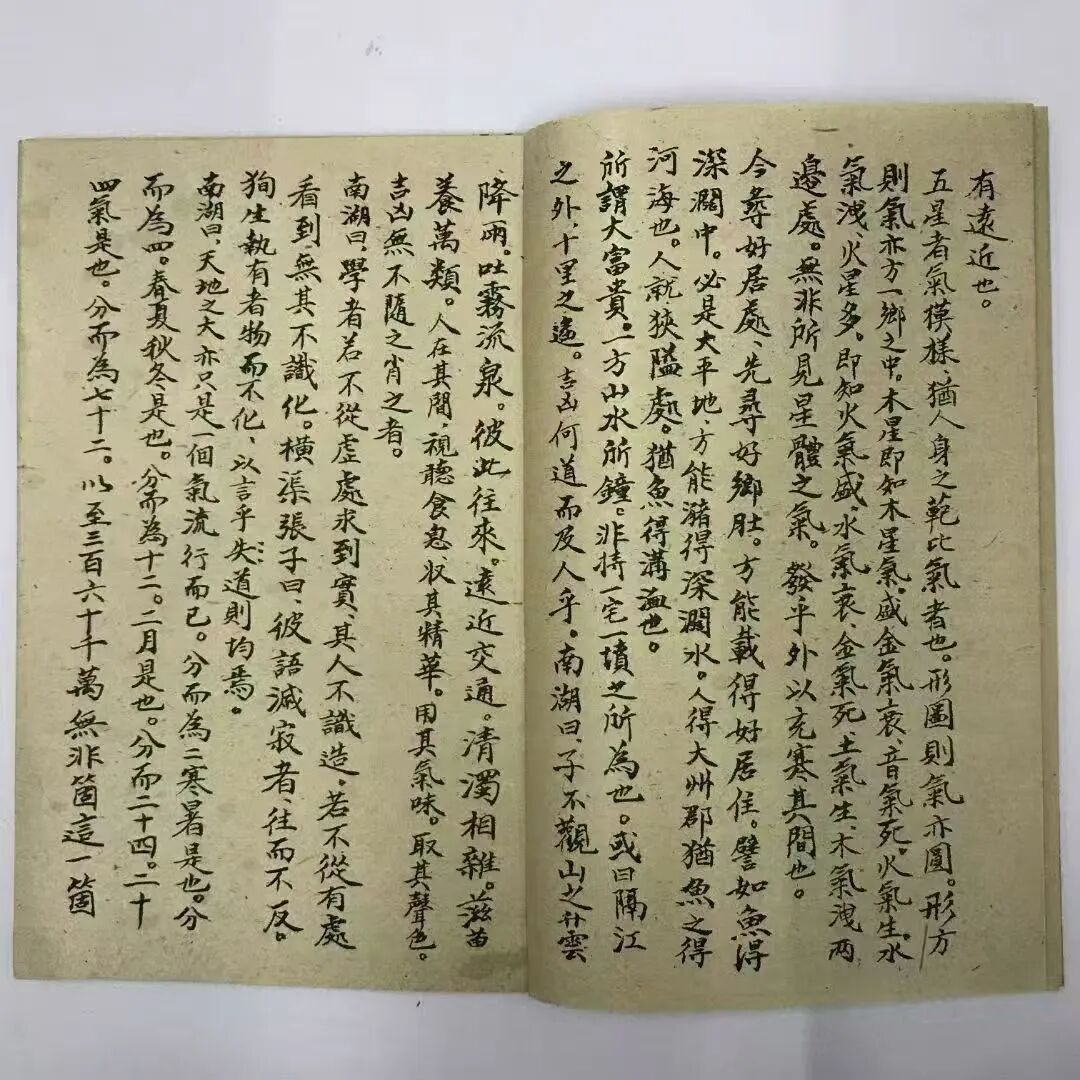 有遠近也。
五星者氣模樣、猶人身之範比氣者也。形圖則氣亦圓。形方
則氣亦方一鄉之中。木星即知木星氣。盛金氣衰、音氣死。火氣生。水
氣洩、火星多。即知火氣盛、水氣衰、金氣死、土氣生、木氣洩兩
邊處。無非所見星體之氣。發乎外以充寒其間也。
今尋好居處、先尋好鄉肚。方能載得好居住。譬如魚得
深濶中。必是大平地、方能瀦得深濶水。人得大州郡猶魚之得
河海也。人就狹隘處。猶魚得溝洫也。
所謂大富貴。一方山水所鐘。非持一宅一墳之所為也。或曰隔江
之外、十里之遙。吉凶何道而及人乎。南湖曰、子不觀山之升雲
降雨。吐霧流泉。彼此往來。遠近交通。清濁相雜。滋苗
養萬類。人在其間、視聽食息、収其精華。用其氣味。取其聲色。
吉凶無不隨之肖之者。
南湖曰、學者若不從虛處求到實、其人不識造。若不從有處
看到無其不識化。橫渠張子曰、彼語滅寂者、往而不反。
狥生執有者物而不化、以言乎失道則均焉。
南湖曰、天地之大亦只是一個氣流行而已。分而為二寒暑是也。分
而為四。春夏秋冬是也。分而為十二。二月是也。分而二十四。二十
四氣是也。分而為七十二。以至三百六十千萬無非箇這一箇